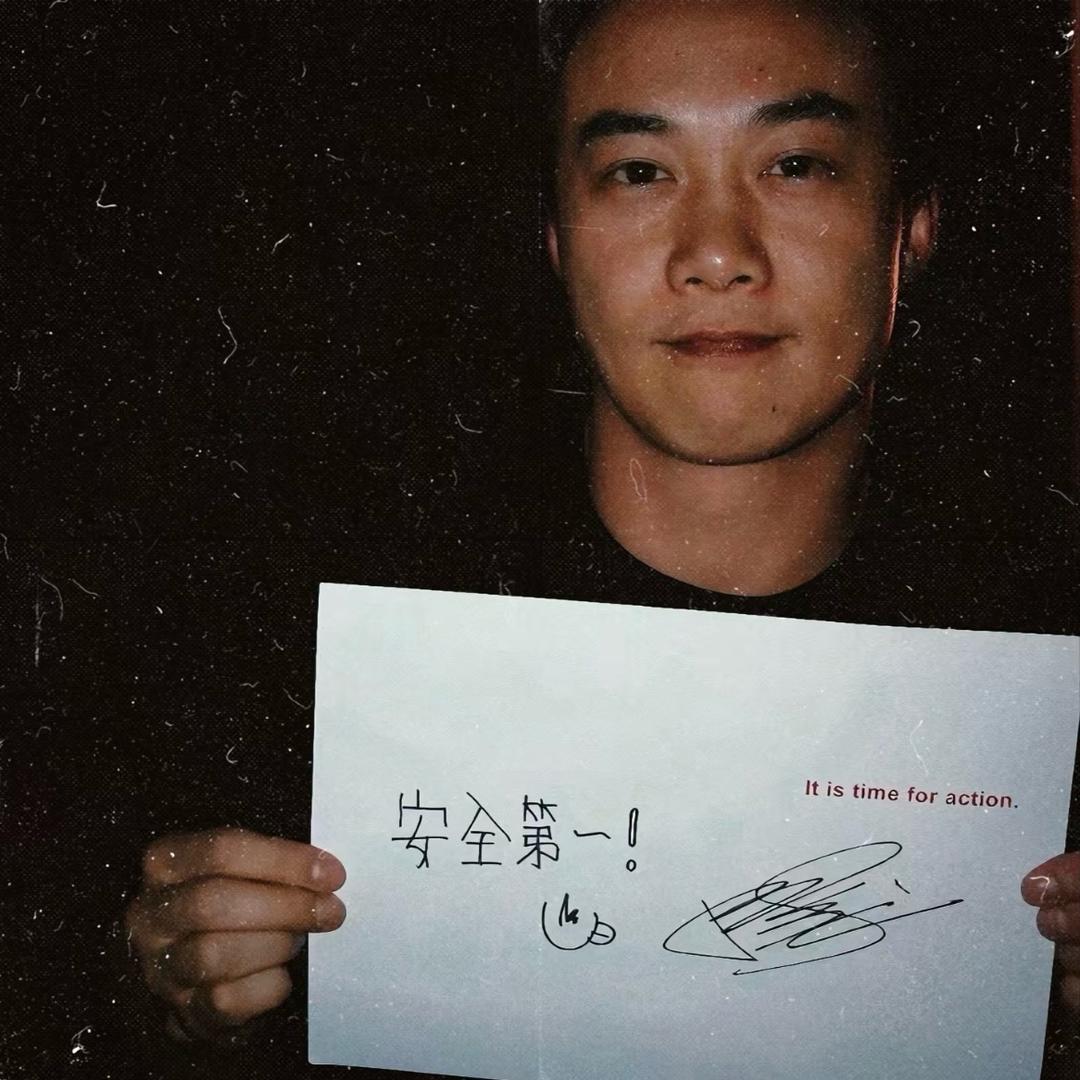 It is time for action.
安全第一!